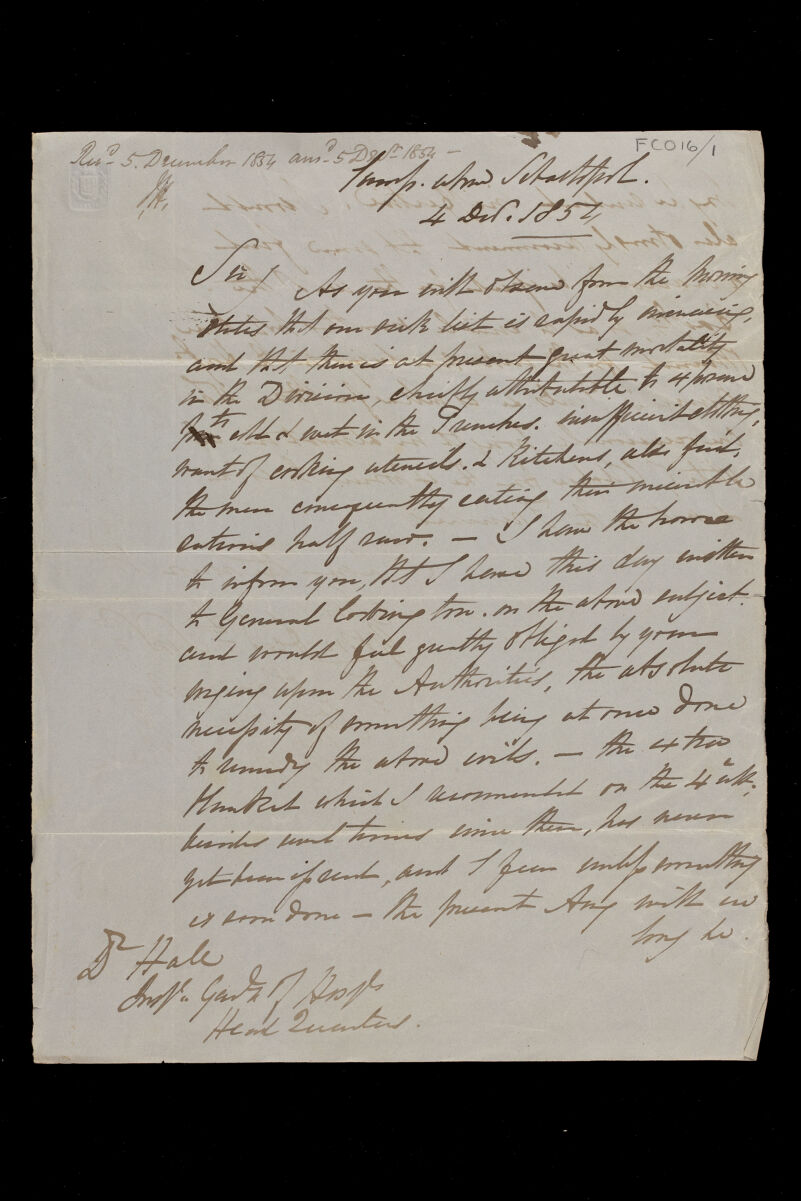 Recd. 5. December 1854 ansd. 5 Decr. 1854 —
FCO16/1
JH.
Camp. above Sebastopol.
4 Decr. 1854
Sir/
As you will observe from the Morning
States that our sick list is rapidly increasing,
and that there is at present great mortality
in the Division, chiefly attributable to exposure
to cold & wet in the Trenches. insufficient clothing,
want of cooking utensils. & Kitchens, also fuel,
the men consequently eating their miserable
rations half raw. — I have the honor
to inform you, that I have this day written
to General Codrington. on the above subject.
and would feel greatly obliged by your
urging upon the Authorities, the absolute
necessity of something being at once done
to remedy the above evils. — the extra
Blanket which I recommended on the 4th ult.
besides several times since then, has never
yet been issued, and I fear unless something
is soon done — the present Army will ere
long be.
Dr Hall
Inspr. Genl. of Hospls
Head Quarters.